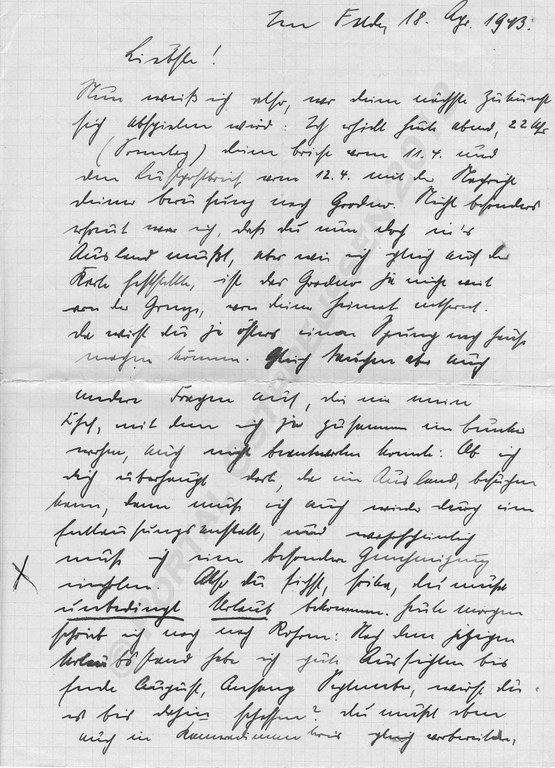 Im Felde, 18. Apr. 1943.
Liebste!
Nun weiß ich also, wo deine nächste Zukunft
sich abspielen wird: Ich erhielt heute abend, 22 Uhr
(Sonntag) deine Briefe vom 11.4. und
den Luftpostbrief vom 12.4. mit der Nachricht
deiner Berufung nach Grodno. Nicht besonders
erfreut war ich, daß du nun doch in's
Ausland mußt, aber wie ich gleich auf der
Karte feststellte, ist das Grodno ja nicht weit
von der Grenze, von deiner Heimat entfernt.
da wirst du ja öfters einen Sprung nach Hause
machen können. Gleich tauchen aber auch
andere Fragen auf, die mir mein
Chef, mit dem ich ja zusammen im Bunker
wohne, auch nicht beantworten konnte: Ob ich
dich überhaupt dort, da im Ausland, besuchen
kann, dann muß ich auch wieder durch eine
Entlausungsanstalt, und wahrscheinlich
muß ich eine besondere Genehmigung
Also du siehst, du mußt
unbedingt Urlaub bekommen. Heute morgen
schrieb ich noch nach: Nach dem jetzigen
Urlaubsstand habe ich gute Aussichten bis
Ende August, Anfang September, wirst du
es bis dahin schaffen? du mußt eben
auch im Kameradinnenkreis gleich vorbereiten,
© PORTAL OSTPREUSSEN 2013